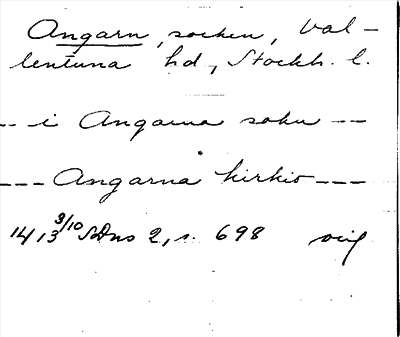 Angarn, socken, Val-
lentuna hd, Stockh. l.
-- i Angarna sokn --
--- Angarna kirkio ---
1413 3/10 SDns 2, s. 698 orig